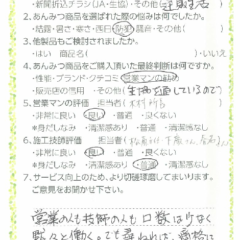 ・新聞折込チラシ(JA・生協)・その他(
2.あんみつ商品を選ばれた際の悩みは何でしたか。
・結露・暑さ・寒さ・西日・防音・その他(
3.他製品もご検討されましたか。
・はい 商品名( )・いいえ
4.あんみつ商品をご購入頂いた最終判断は何ですか。
・性能・ブランド・クチコミ・営業マンの勧め
・販売店の信用・その他(
5.営業マンの評価 担当者(
・非常に良い・良い・普通・良くない
*身だしなみ ・清潔感あり ・普通 ・清潔感なし
6.施工技師評価 担当者
・非常に良い ・良い ・普通 ・良くない
*身だしなみ ・清潔感あり ・普通 ・清潔感なし
7.サービス向上のため、より切磋琢磨してまいります。
ご意見をお聞かせ下さい。
営業の人も技師の人も口数は少なく